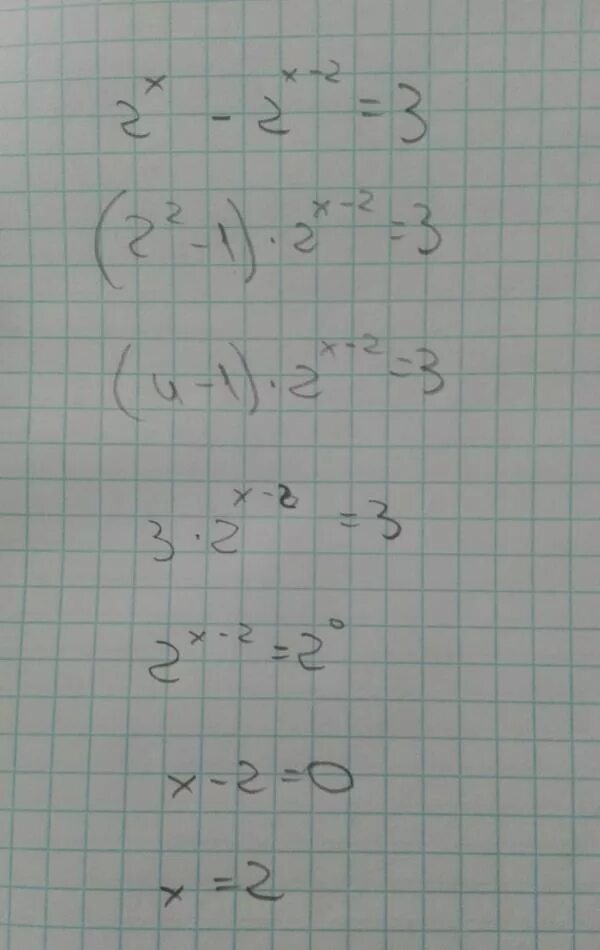 2^x - 2^{x-2} = 3
(2^2 - 1) · 2^{x-2} = 3
(4 - 1) · 2^{x-2} = 3
3 · 2^{x-2} = 3
2^{x-2} = 2^0
x - 2 = 0
x = 2